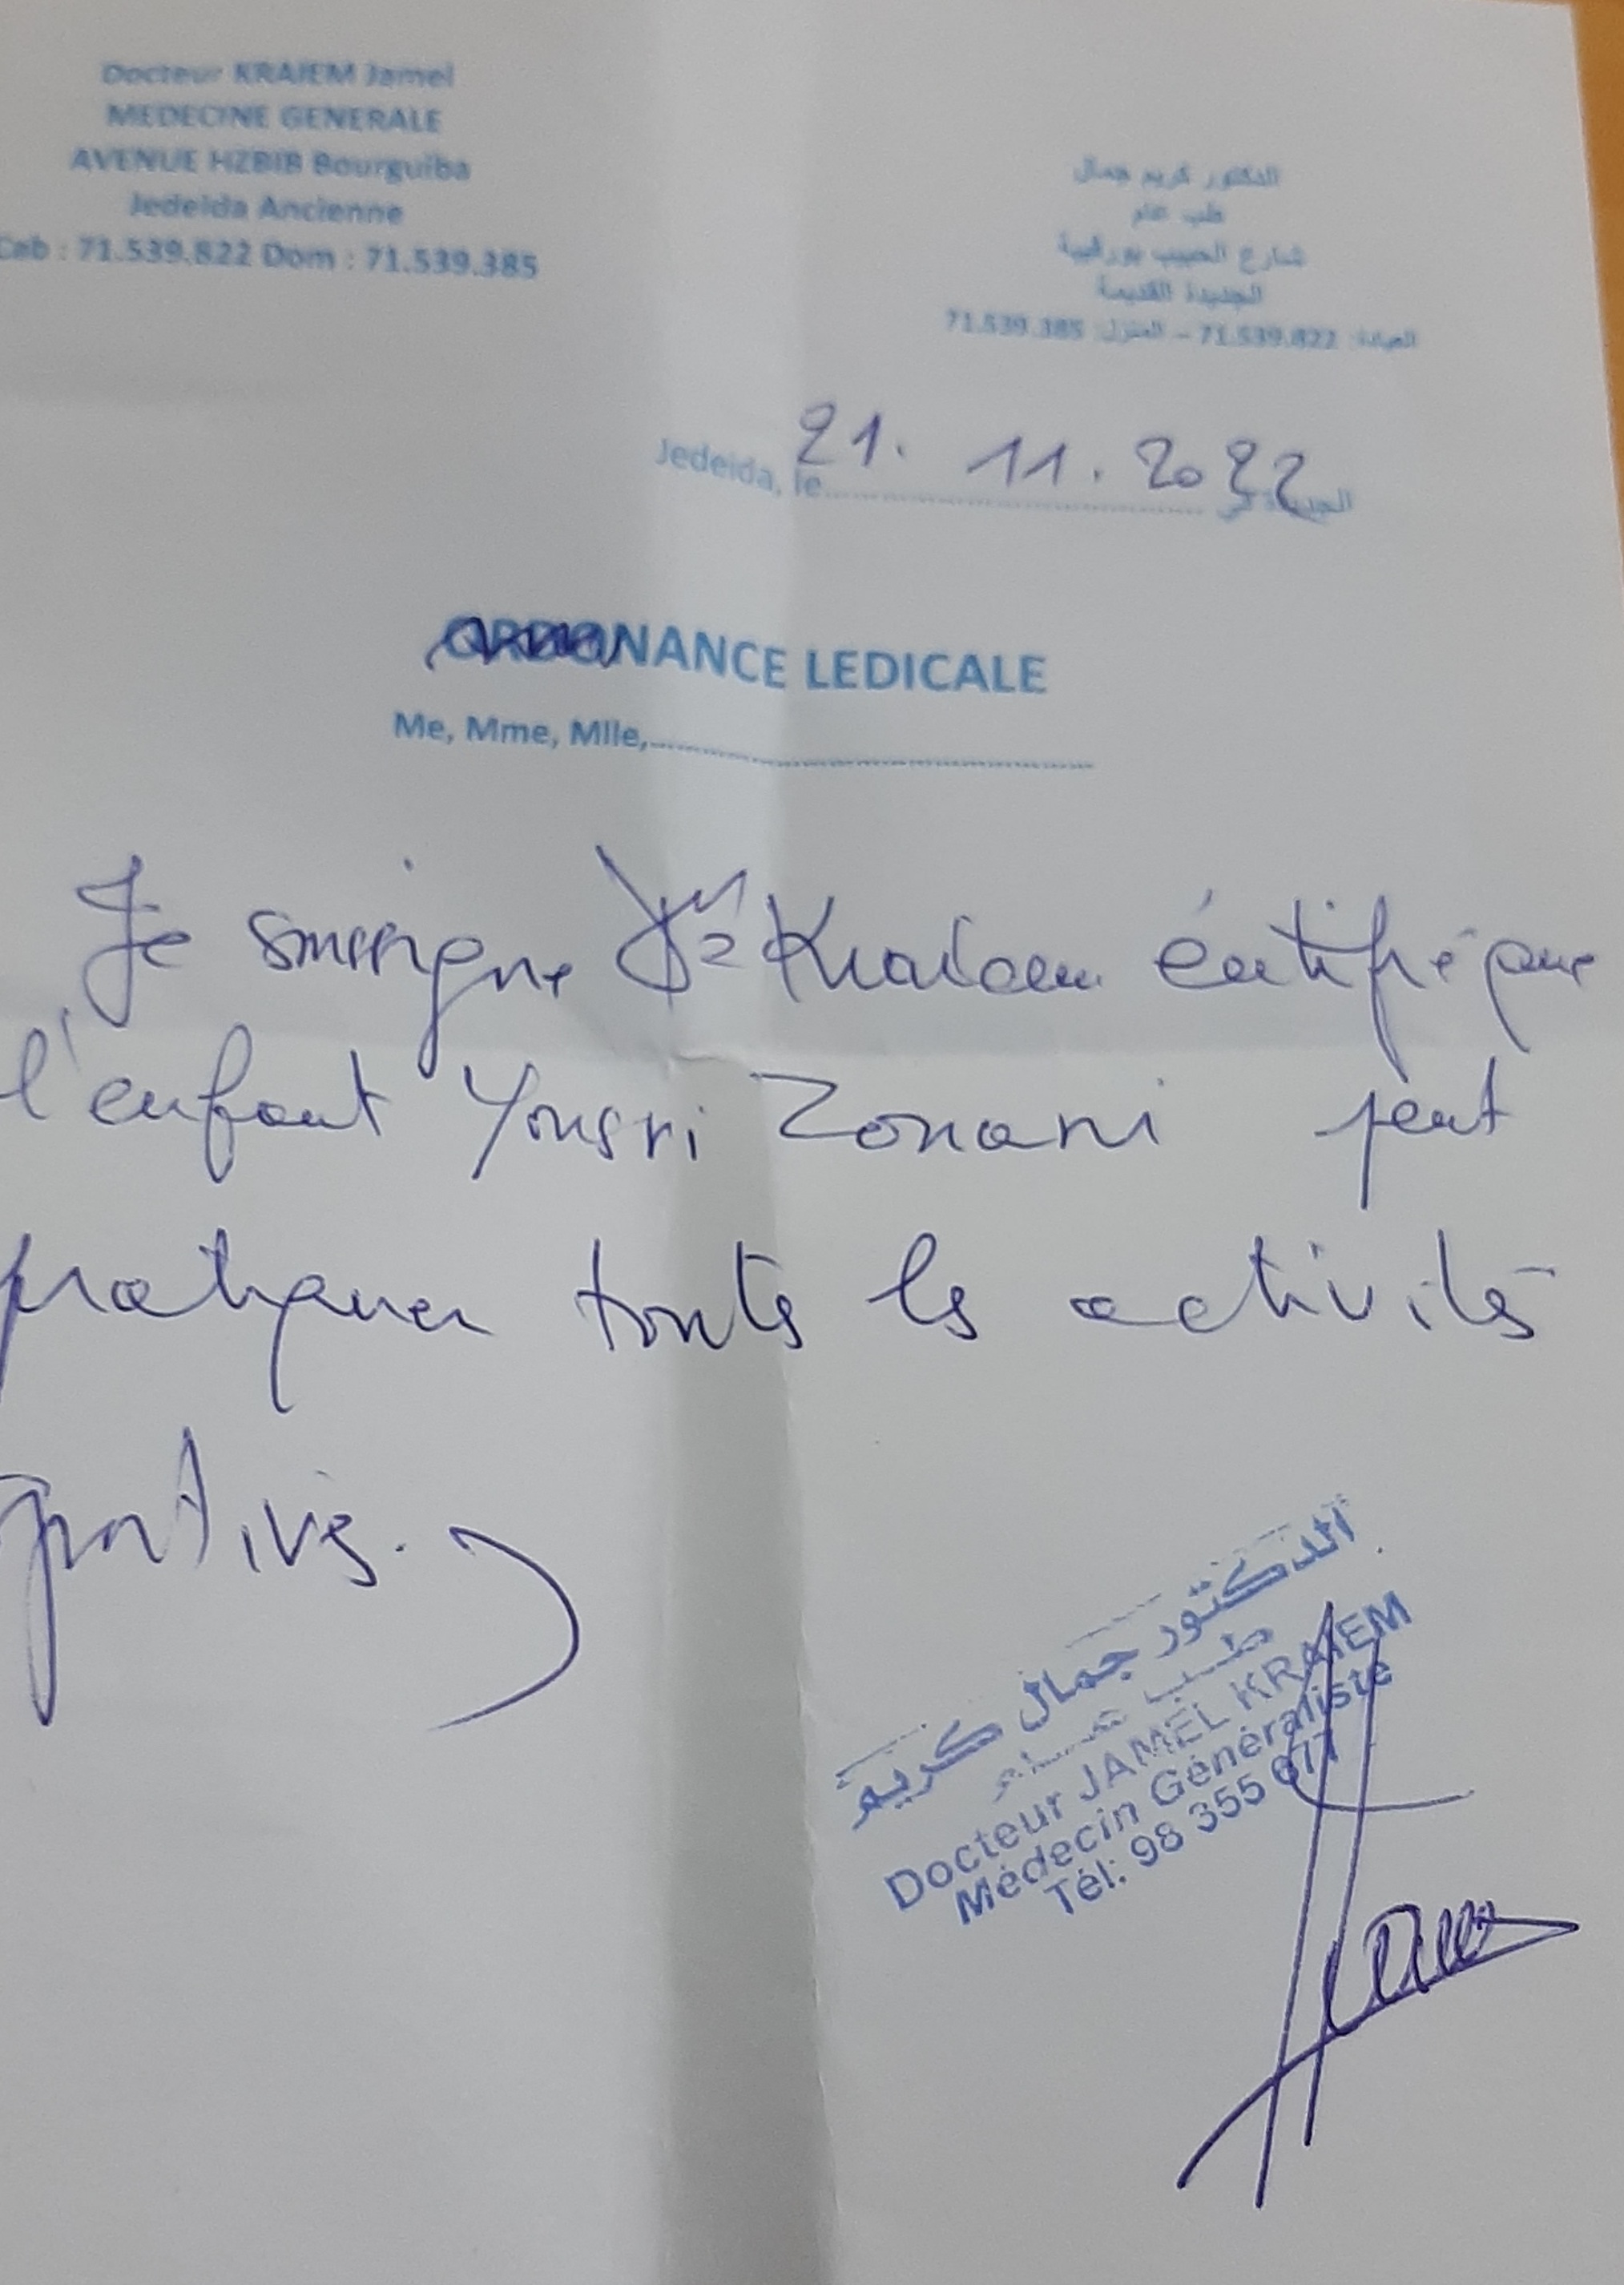 Docteur KRAIEM Jamel
MEDECINE GENERALE
AVENUE HZBIB Bourguiba
Jedeida Ancienne
Cab : 71.539.822 Dom : 71.539.385
الدكتور كريم جمال
طب عام
شارع الحبيب بورقيبة
الجديدة القديمة
العيادة: 71.539.822 – المنزل: 71.539.385
Jedeida, le 21. 11. 2022 الجديدة في
ORDONANCE LEDICALE
Me, Mme, Mlle,
Je soussigné Dr Kraiem certifie que
l'enfant Yousri Zouari peut
pratiquer toutes les activités
sportives.
الدكتور جمال كريم
طب عام
Docteur JAMEL KRAIEM
Médecin Généraliste
Tél: 98 355 677